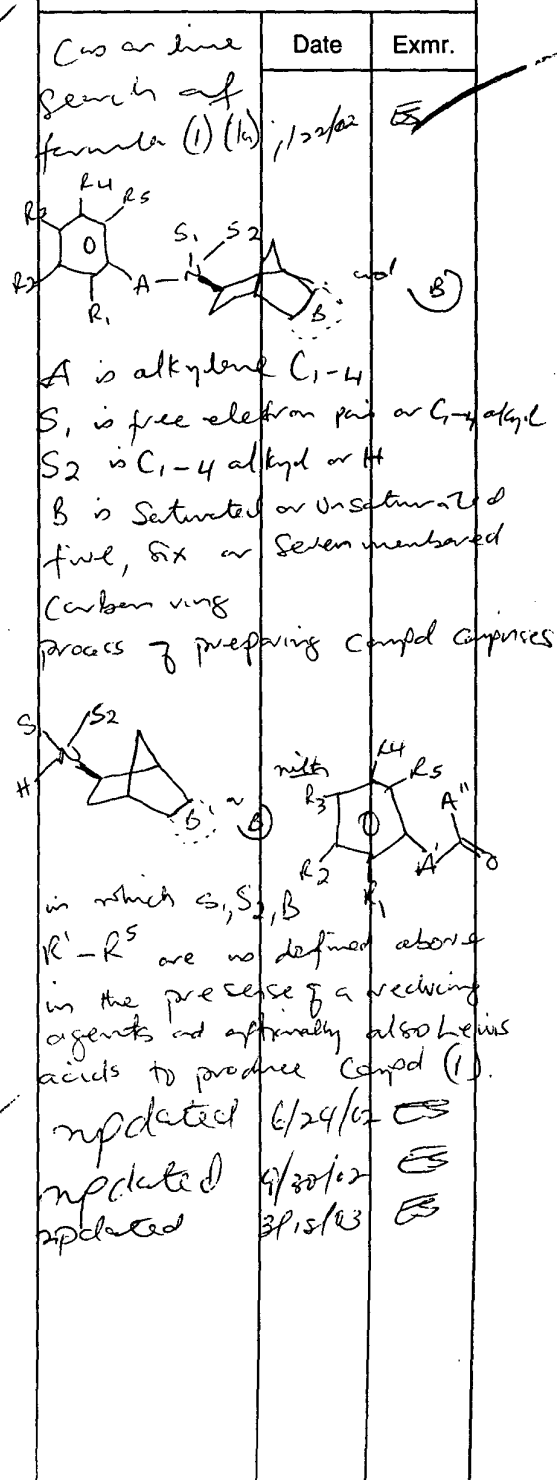 Date Exmr.
Cas on line
Search of
formula (1) (1a) , 1/22/02 ES
R4
R3 R5
R2 R1 A — N S1 S2 B and B
A is alkylene C1-4
S1 is free eletron pair or C1-4 alkyl
S2 is C1-4 alkyl or H
B is Saturated or Unsaturated
five, Six or Seven membered
Carbon ring
process of preparing compd comprises
S S2
H N B or B with R3 R4 R5 A"
R2 R1 A' O
in which S1, S2, B
R1 - R5 are as defined above
in the presense of a reducing
agents and optionally also Lewis
acids to produce Compd (1).
updated 6/24/02 ES
updated 9/30/02 ES
updated ES